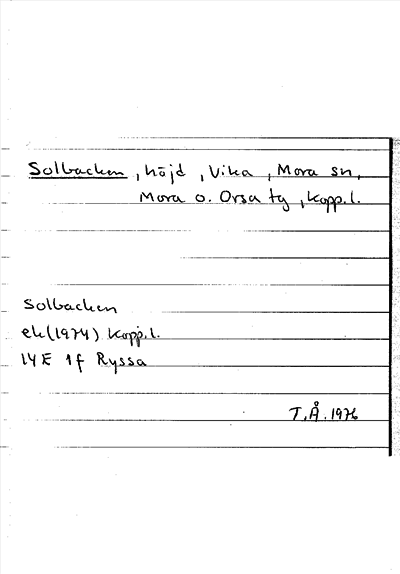 Solbacken, höjd, Vika, Mora sn,
Mora o. Orsa tg, Kopp.l.
Solbacken
ek(1974) Kopp.l.
14E 1f Ryssa
T.Å. 1976